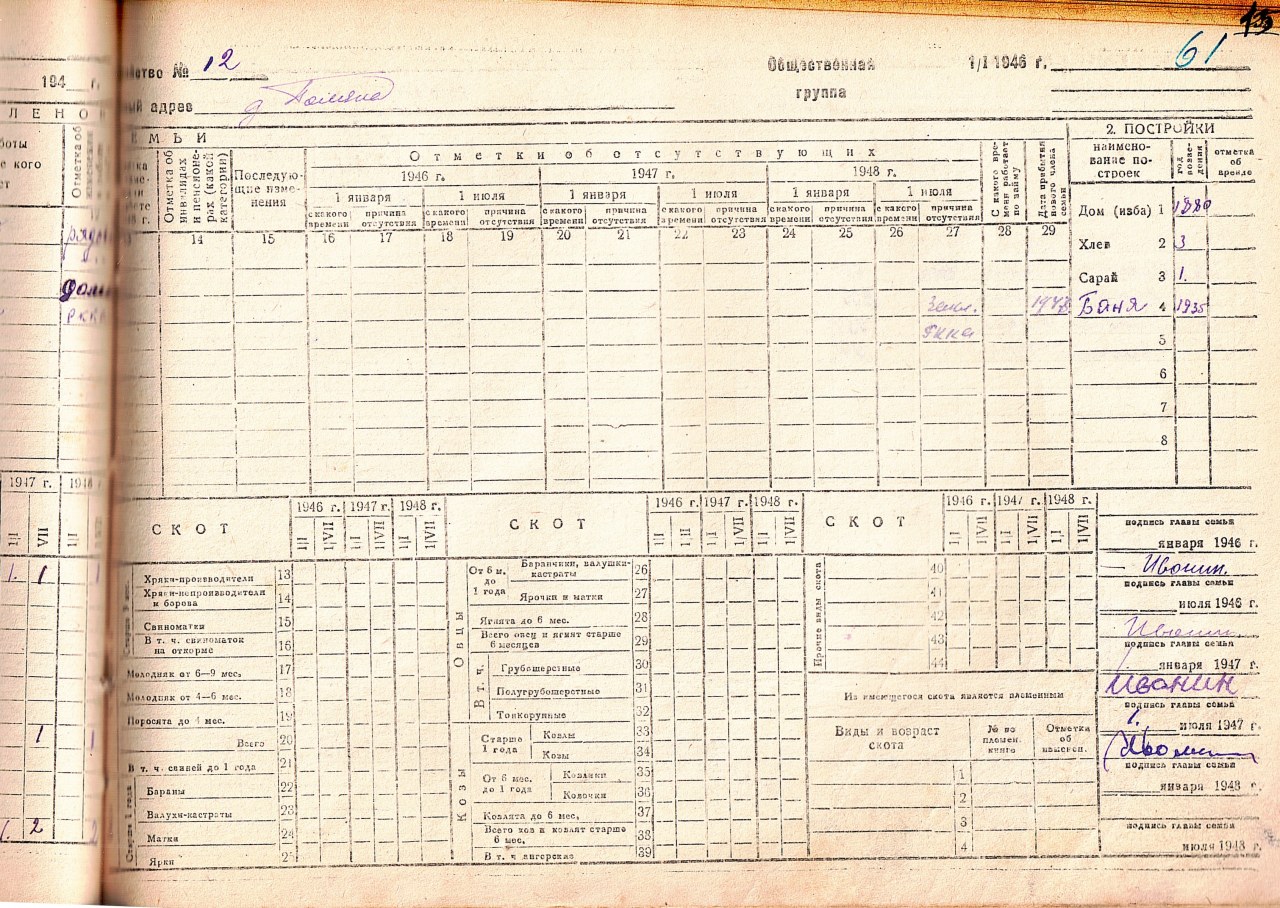 61
194 г.
ство № 12
Общественная 1/I 1946 г.
группа
ый адрес
МЬИ
2. ПОСТРОЙКИ
Отметки об отсутствующих
Отметка об инвалидах и пенсионерах (какой категории)
Последующие изменения
1946 г. 1947 г. 1948 г.
1 января 1 июля 1 января 1 июля 1 января 1 июля
с какого времени причина отсутствия с какого времени причина отсутствия с какого времени причина отсутствия с какого времени причина отсутствия с какого времени причина отсутствия с какого времени причина отсутствия
С какого времени работает по найму
Дата прибытия нового члена семьи
наименование построек
год возведения
отметка об аренде
14 15 16 17 18 19 20 21 22 23 24 25 26 27 28 29
Дом (изба) 1 1880
Хлев 2 3
Сарай 3 1.
Баня 4 1935
5
6
7
8
1947 г.
VII
СКОТ 1946 г. 1947 г. 1948 г.
1|I 1|VII 1|I 1|VII 1|I 1|VII
Хряки-производители 13
Хряки-непроизводители и борова 14
Свиноматки 15
В т. ч. свиноматок на откорме 16
Молодняк от 6—9 мес. 17
Молодняк от 4—6 мес. 18
Поросята до 4 мес. 19
Всего 20
В т. ч. свиней до 1 года 21
Бараны 22
Валухи-кастраты 23
Матки 24
Ярки 25
СКОТ 1946 г. 1947 г. 1948 г.
1|I 1|VII 1|I 1|VII 1|I 1|VII
Овцы
От 6 м. до 1 года
Баранчики, валушки-кастраты 26
Ярочки и матки 27
Ягнята до 6 мес. 28
Всего овец и ягнят старше 6 месяцев 29
В т. ч.
Грубошерстные 30
Полугрубошерстные 31
Тонкорунные 32
Козы
Старше 1 года
Козлы 33
Козы 34
От 6 мес. до 1 года
Козлики 35
Козочки 36
Козлята до 6 мес. 37
Всего коз и козлят старше 6 мес. 38
В т. ч. ангорская 39
СКОТ 1946 г. 1947 г. 1948 г.
1|I 1|VII 1|I 1|VII 1|I 1|VII
Прочие виды скота
40
41
42
43
44
Из имеющегося скота является племенным
Виды и возраст скота
№ по племен. книге
Отметка об
1
2
3
4
подпись главы семьи
января 1946 г.
Иванин.
подпись главы семьи
июля 1946 г.
Иванин
подпись главы семьи
января 1947 г.
Иванин
подпись главы семьи
июля 1947 г.
Иванин
подпись главы семьи
января 1948 г.
подпись главы семьи
июля 1948 г.